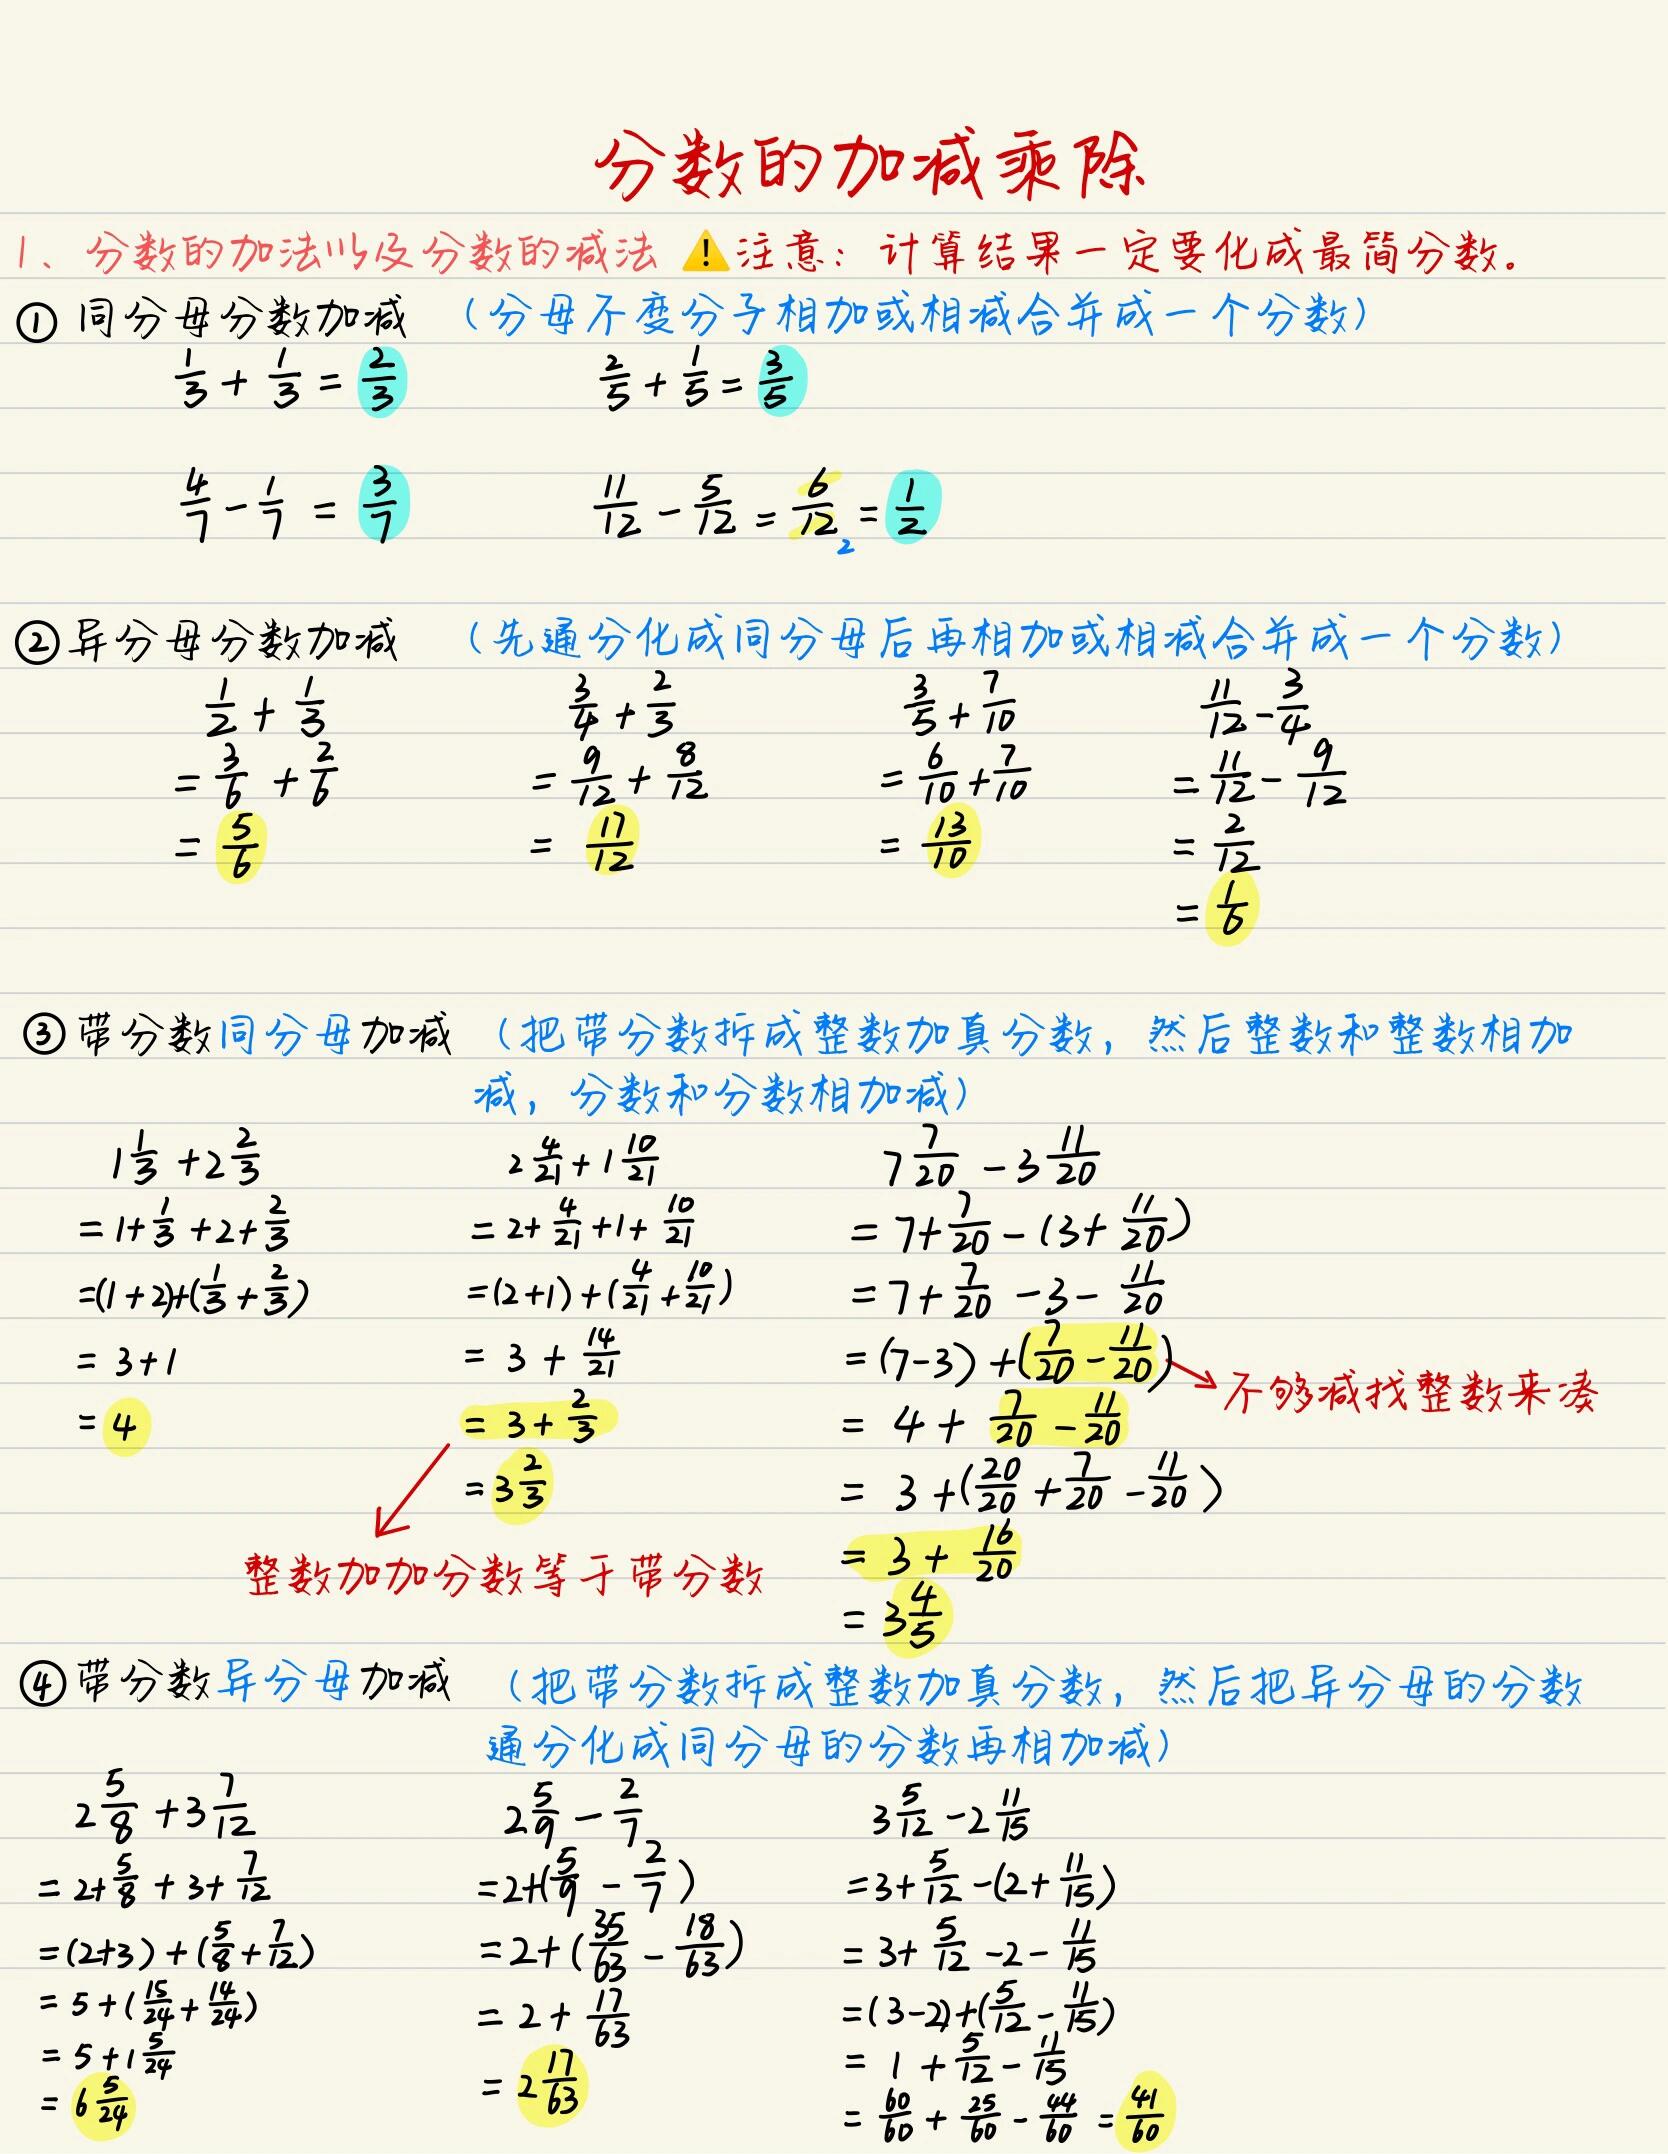 分数的加减乘除
1、分数的加法以及分数的减法 ⚠注意：计算结果一定要化成最简分数。
① 同分母分数加减 （分母不变分子相加或相减合并成一个分数）
1/3 + 1/3 = 2/3    2/5 + 1/5 = 3/5
4/7 - 1/7 = 3/7    11/12 - 5/12 = 6/12 = 1/2
2
② 异分母分数加减 （先通分化成同分母后再相加或相减合并成一个分数）
1/2 + 1/3    3/4 + 2/3    3/5 + 7/10    11/12 - 3/4
= 3/6 + 2/6    = 9/12 + 8/12    = 6/10 + 7/10    = 11/12 - 9/12
= 5/6    = 17/12    = 13/10    = 2/12
= 1/6
③ 带分数同分母加减 （把带分数拆成整数加真分数，然后整数和整数相加
减，分数和分数相加减）
1 1/3 + 2 2/3    2 4/21 + 1 10/21    7 7/20 - 3 11/20
= 1 + 1/3 + 2 + 2/3    = 2 + 4/21 + 1 + 10/21    = 7 + 7/20 - (3 + 11/20)
= (1 + 2) + (1/3 + 2/3)    = (2+1) + (4/21 + 10/21)    = 7 + 7/20 - 3 - 11/20
= 3 + 1    = 3 + 14/21    = (7-3) + (7/20 - 11/20) → 不够减找整数来凑
= 4    = 3 + 2/3    = 4 + 7/20 - 11/20
= 3 2/3    = 3 + (20/20 + 7/20 - 11/20)
整数加加分数等于带分数    = 3 + 16/20
= 3 4/5
④ 带分数异分母加减 （把带分数拆成整数加真分数，然后把异分母的分数
通分化成同分母的分数再相加减）
2 5/8 + 3 7/12    2 5/9 - 2/7    3 5/12 - 2 11/15
= 2 + 5/8 + 3 + 7/12    = 2 + (5/9 - 2/7)    = 3 + 5/12 - (2 + 11/15)
= (2+3) + (5/8 + 7/12)    = 2 + (35/63 - 18/63)    = 3 + 5/12 - 2 - 11/15
= 5 + (15/24 + 14/24)    = 2 + 17/63    = (3-2) + (5/12 - 11/15)
= 5 + 1 5/24    = 2 17/63    = 1 + 5/12 - 11/15
= 6 5/24    = 60/60 + 25/60 - 44/60 = 41/60